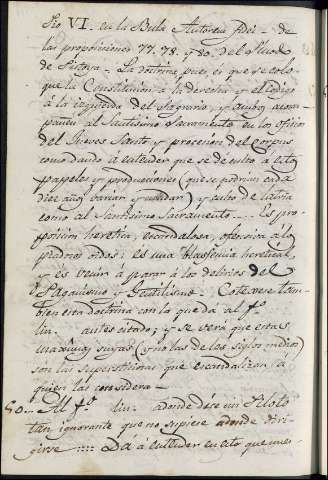 Pio VI. en la Bula Autorem fidei - de
las proposiciones 77. 78. y 80. del Sinodo
de Pistoya - La doctrina pues, es que se colo-
que la Constitucion à la derecha y el codigo
à la izquierda del Sagrario, y ambos acom-
pañen al Santisimo Sacramento en los oficios
del Jueves Santo y procesion del corpus
como dando à entender que se dè culto a estos
papeles y producciones (que se podrian cada
diez años variar y mudar) y culto de latria
como al Santisimo Sacramento .... Es pro-
posicion heretica, escandalosa, ofensiva à los
piadosos oidos: es una blasfemia heretical,
y es venir à parar à los delirios del
Paganismo y Gentilismo - Cotexese tam-
bien esta doctrina con la que dà al f.º
lin. antes citado; y se verà que estas
maximas suyas (y no las de los siglos medios)
son las supersticiosas que escandalizan à
quien las considera -
80 - Al f.º lin. adonde dice un Piloto
tan ignorante que no supiere adonde diri-
girse :::: Dà à entender en esto que nues-